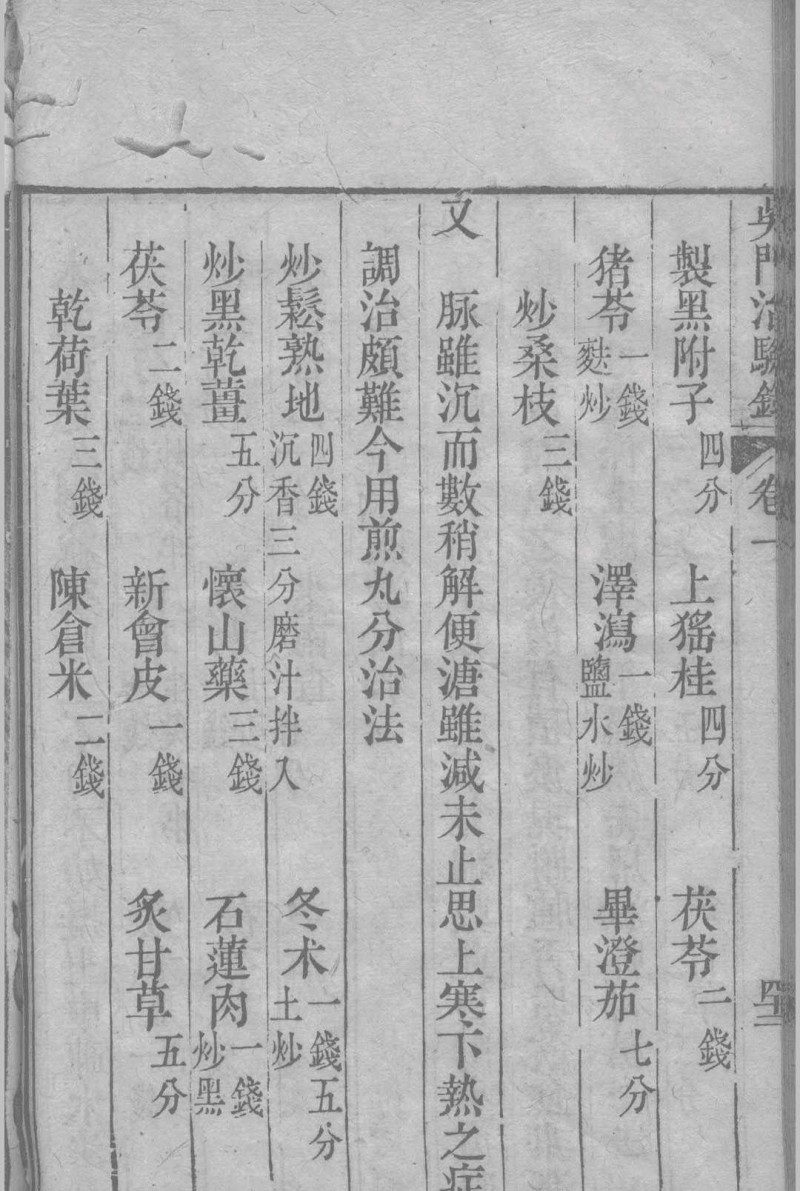 吳門治驗錄 卷一 四二
製黑附子四分 上猺桂四分 茯苓二錢
猪苓一錢麩炒 澤瀉一錢鹽水炒 畢澄茄七分
炒桑枝三錢
又 脉雖沉而數稍解便溏雖減未止思上寒下熱之症
調治頗難今用煎丸分治法
炒鬆熟地四錢沉香三分磨汁拌入 冬术一錢五分土炒
炒黑乾薑五分 懷山藥三錢 石蓮肉一錢炒黑
茯苓二錢 新會皮一錢 炙甘草五分
乾荷葉三錢 陳倉米二錢